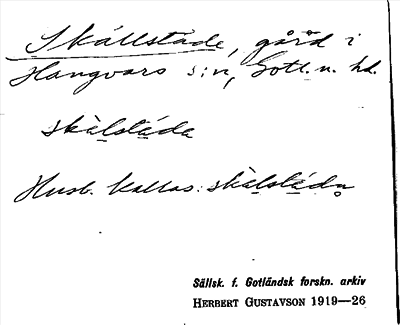 Skällstäde, gård i
Hangvars s:n, Gotl. n. hd.
skälstäda
Husb. kallas: skälstädu
Sällsk. f. Gotländsk forskn. arkiv
HERBERT GUSTAVSON 1919—26